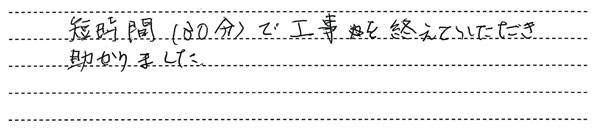 短時間(80分)で工事を終えていただき
助かりました